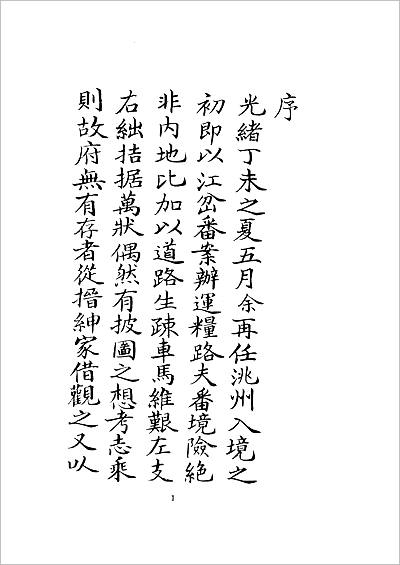 序
光緒丁未之夏五月余再任洮州入境之
初即以江岔番案辦運糧路夫番境險絕
非內地比加以道路生疎車馬維艱左支
右絀拮据萬狀偶然有披圖之想考志乘
則故府無有存者從搢紳家借觀之又以
1